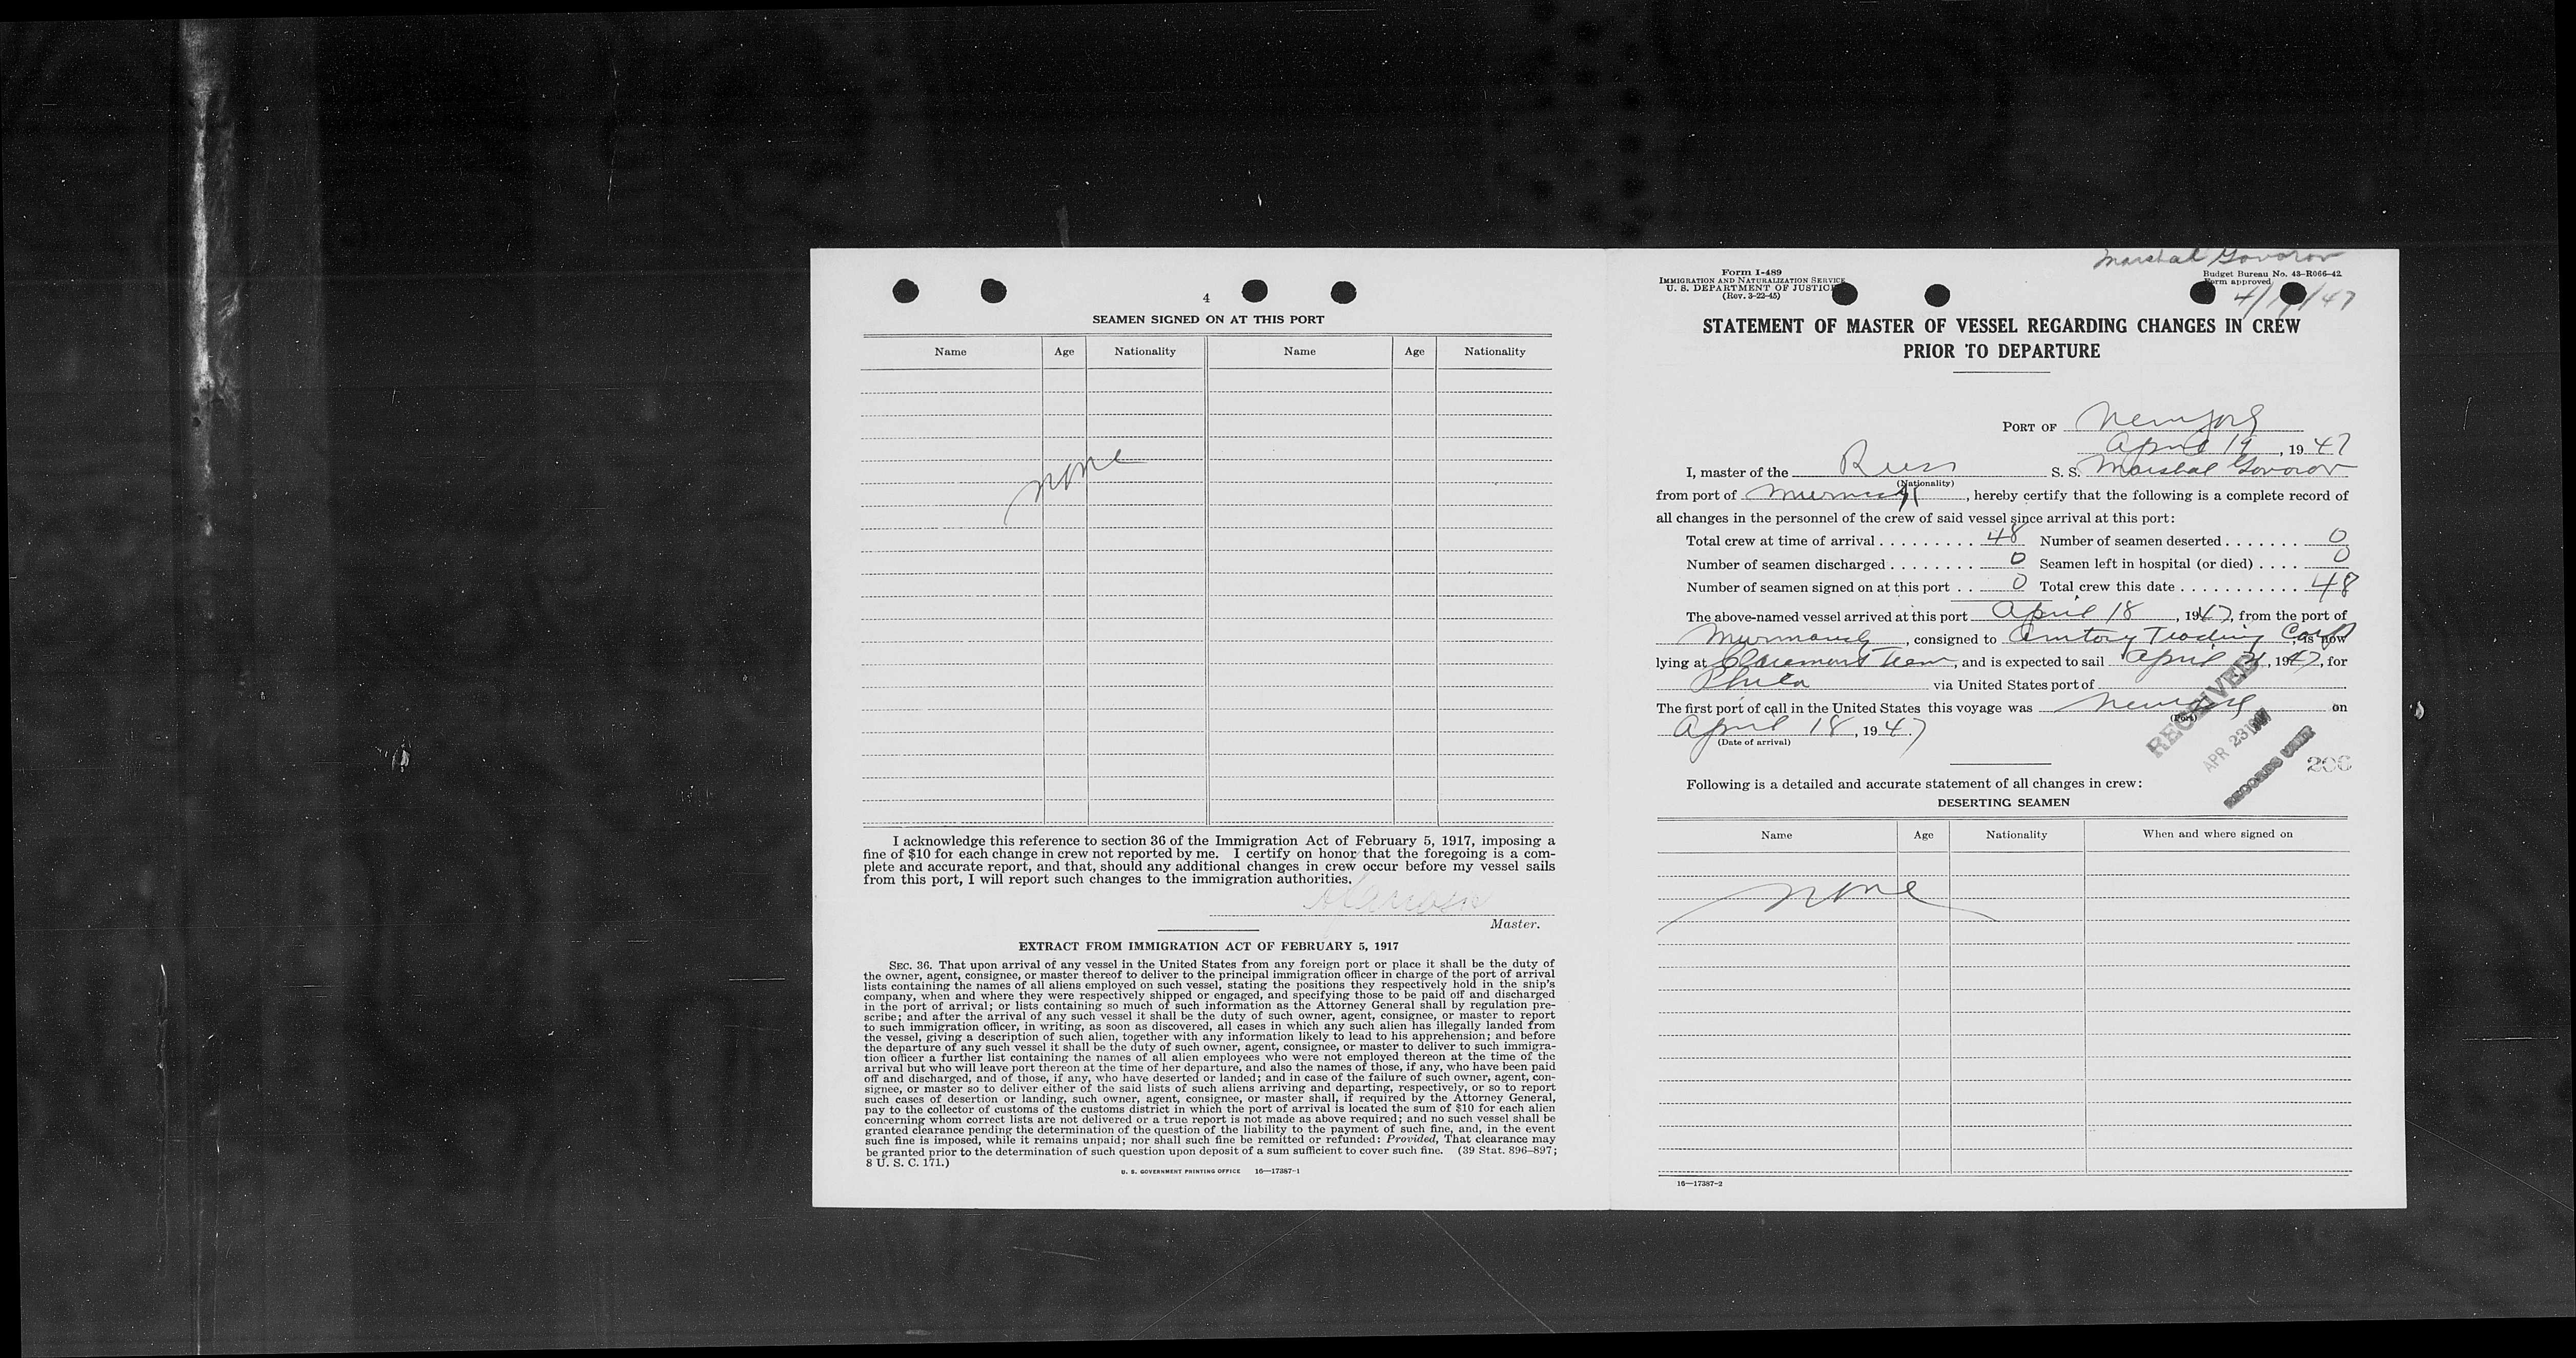 4
SEAMEN SIGNED ON AT THIS PORT
Name Age Nationality Name Age Nationality
none
I acknowledge this reference to section 36 of the Immigration Act of February 5, 1917, imposing a
fine of $10 for each change in crew not reported by me. I certify on honor that the foregoing is a com-
plete and accurate report, and that, should any additional changes in crew occur before my vessel sails
from this port, I will report such changes to the immigration authorities.
Master.
EXTRACT FROM IMMIGRATION ACT OF FEBRUARY 5, 1917
SEC. 36. That upon arrival of any vessel in the United States from any foreign port or place it shall be the duty of
the owner, agent, consignee, or master thereof to deliver to the principal immigration officer in charge of the port of arrival
lists containing the names of all aliens employed on such vessel, stating the positions they respectively hold in the ship's
company, when and where they were respectively shipped or engaged, and specifying those to be paid off and discharged
in the port of arrival; or lists containing so much of such information as the Attorney General shall by regulation pre-
scribe; and after the arrival of any such vessel it shall be the duty of such owner, agent, consignee, or master to report
to such immigration officer, in writing, as soon as discovered, all cases in which any such alien has illegally landed from
the vessel, giving a description of such alien, together with any information likely to lead to his apprehension; and before
the departure of any such vessel it shall be the duty of such owner, agent, consignee, or master to deliver to such immigra-
tion officer a further list containing the names of all alien employees who were not employed thereon at the time of the
arrival but who will leave port thereon at the time of her departure, and also the names of those, if any, who have been paid
off and discharged, and of those, if any, who have deserted or landed; and in case of the failure of such owner, agent, con-
signee, or master so to deliver either of the said lists of such aliens arriving and departing, respectively, or so to report
such cases of desertion or landing, such owner, agent, consignee, or master shall, if required by the Attorney General,
pay to the collector of customs of the customs district in which the port of arrival is located the sum of $10 for each alien
concerning whom correct lists are not delivered or a true report is not made as above required; and no such vessel shall be
granted clearance pending the determination of the question of the liability to the payment of such fine, and, in the event
such fine is imposed, while it remains unpaid; nor shall such fine be remitted or refunded: Provided, That clearance may
be granted prior to the determination of such question upon deposit of a sum sufficient to cover such fine. (39 Stat. 896-897;
8 U. S. C. 171.)
U. S. GOVERNMENT PRINTING OFFICE 16—17387-1
Marshal Govorov
Form I-489
IMMIGRATION AND NATURALIZATION SERVICE
U. S. DEPARTMENT OF JUSTICE
(Rev. 3-22-45)
Budget Bureau No. 43-R066-42
Form approved
STATEMENT OF MASTER OF VESSEL REGARDING CHANGES IN CREW
PRIOR TO DEPARTURE
PORT OF New York
April 19, 1947
I, master of the Russ S. S. Marshal Govorov
(Nationality)
from port of Murmansk, hereby certify that the following is a complete record of
all changes in the personnel of the crew of said vessel since arrival at this port:
Total crew at time of arrival . . . . . . . . . 48 Number of seamen deserted . . . . . . . 0
Number of seamen discharged . . . . . . . . 0 Seamen left in hospital (or died) . . . . 0
Number of seamen signed on at this port . . 0 Total crew this date . . . . . . . . . . . 48
The above-named vessel arrived at this port April 18, 1947, from the port of
Murmansk, consigned to Amtorg Trading Corp, is now
lying at Claremont Term, and is expected to sail April 21, 1947, for
Phila via United States port of
The first port of call in the United States this voyage was New York on
(Port)
April 18, 1947
(Date of arrival)
RECEIVED
APR 23 1947
RECORDS UNIT
206
Following is a detailed and accurate statement of all changes in crew:
DESERTING SEAMEN
Name Age Nationality When and where signed on
none
16—17387-2